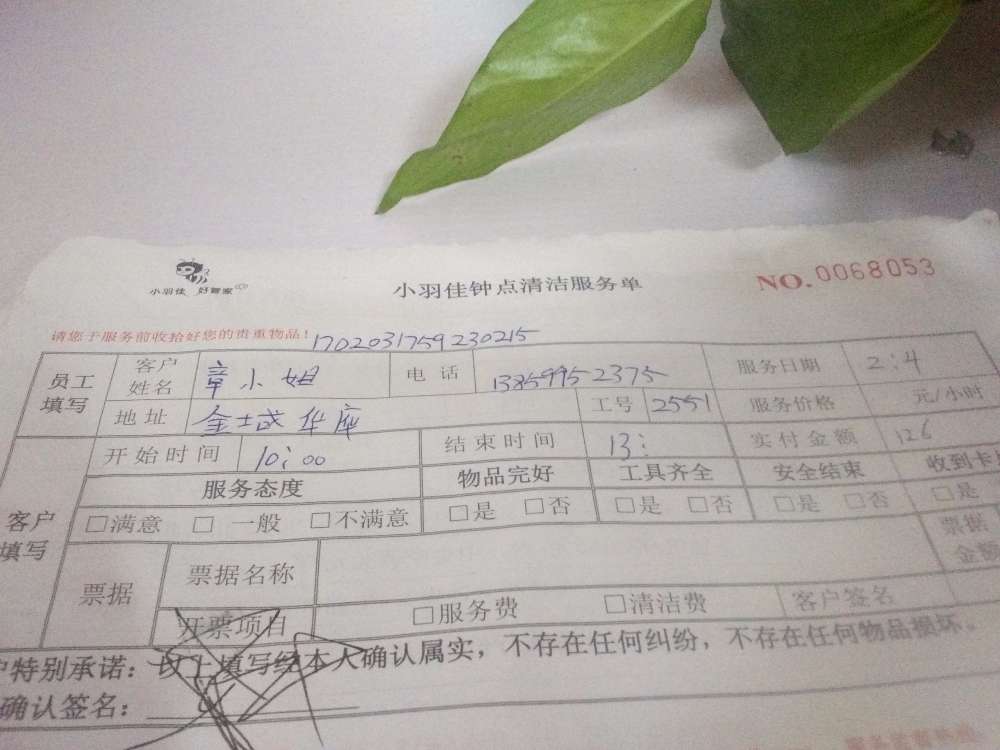 小羽佳 好管家
小羽佳钟点清洁服务单
NO.0068053
请您于服务前收拾好您的贵重物品！1702031759230215
员工填写 客户姓名 章小姐 电话 13859952375 服务日期 2:4
地址 金域华府 工号 2551 服务价格 元/小时
客户填写 开始时间 10:00 结束时间 13: 实付金额 126
服务态度 物品完好 工具齐全 安全结束 收到卡
□满意 □一般 □不满意 □是 □否 □是 □否 □是 □否 □是
票据 票据名称 票据金额
开票项目 □服务费 □清洁费 客户签名
户特别承诺：以上填写经本人确认属实，不存在任何纠纷，不存在任何物品损坏。
确认签名：